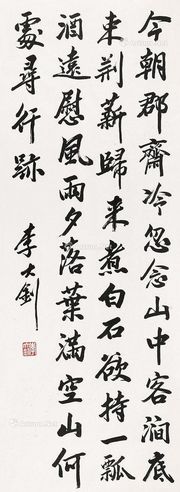 今朝郡齋冷忽念山中客澗底
束荆薪歸来煮白石欲持一瓢
酒遠慰風雨夕落葉滿空山何
處尋行跡
李大釗